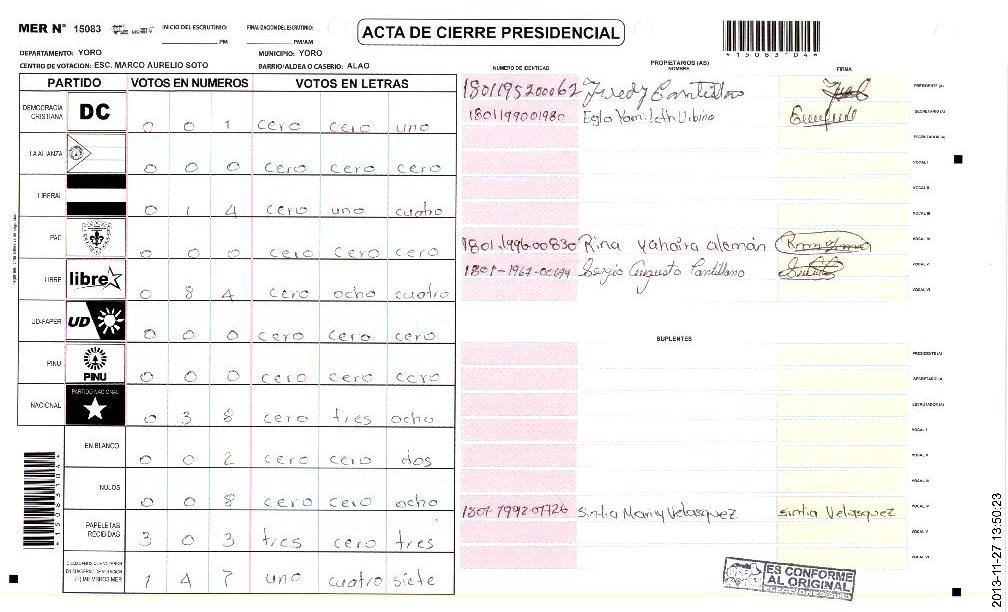 MER N° 15083 INICIO DEL ESCRUTINIO: FINALIZACION DEL ESCRUTINIO:
PM PM/AM
ACTA DE CIERRE PRESIDENCIAL
41508310 4
DEPARTAMENTO: YORO MUNICIPIO: YORO
CENTRO DE VOTACION: ESC. MARCO AURELIO SOTO BARRIO/ALDEA O CASERIO: ALAO
PARTIDO VOTOS EN NUMEROS VOTOS EN LETRAS
DEMOCRACIA CRISTIANA DC 0 0 1 cero cero uno
LA ALIANZA 0 0 0 cero cero cero
LIBERAL 0 1 4 cero uno cuatro
PAC 0 0 0 cero cero cero
LIBRE libre 0 8 4 cero ocho cuatro
UD-FAPER UD 0 0 0 cero cero cero
PINU PINU 0 0 0 cero cero cero
NACIONAL PARTIDO NACIONAL 0 3 8 cero tres ocho
EN BLANCO 0 0 2 cero cero dos
NULOS 0 0 8 cero cero ocho
PAPELETAS RECIBIDAS 3 0 3 tres cero tres
CIUDADANOS QUE VOTARON EN CUADERNO DE VOTACION (+) MIEMBROS MER 1 4 7 uno cuatro siete
PROPIETARIOS (AS)
NUMERO DE IDENTIDAD NOMBRE FIRMA
1801195200062 Fredy Cantillano PRESIDENTE (A)
1801199001980 Egla Yamileth Urbina SECRETARIO (A)
ESCRUTADOR (A)
VOCAL I
VOCAL II
VOCAL III
1801.1996-00830 Rina yahaira alemán VOCAL IV
1801-1967-00694 Sergio Augusto Cantillano VOCAL V
VOCAL VI
SUPLENTES
PRESIDENTE (A)
SECRETARIO (A)
ESCRUTADOR (A)
VOCAL I
VOCAL II
VOCAL III
1801-1992-01726 Sintia Nancy Velasquez sintia Velasquez VOCAL IV
VOCAL V
VOCAL VI
ES CONFORME
AL ORIGINAL
2013-11-27 13:50:23